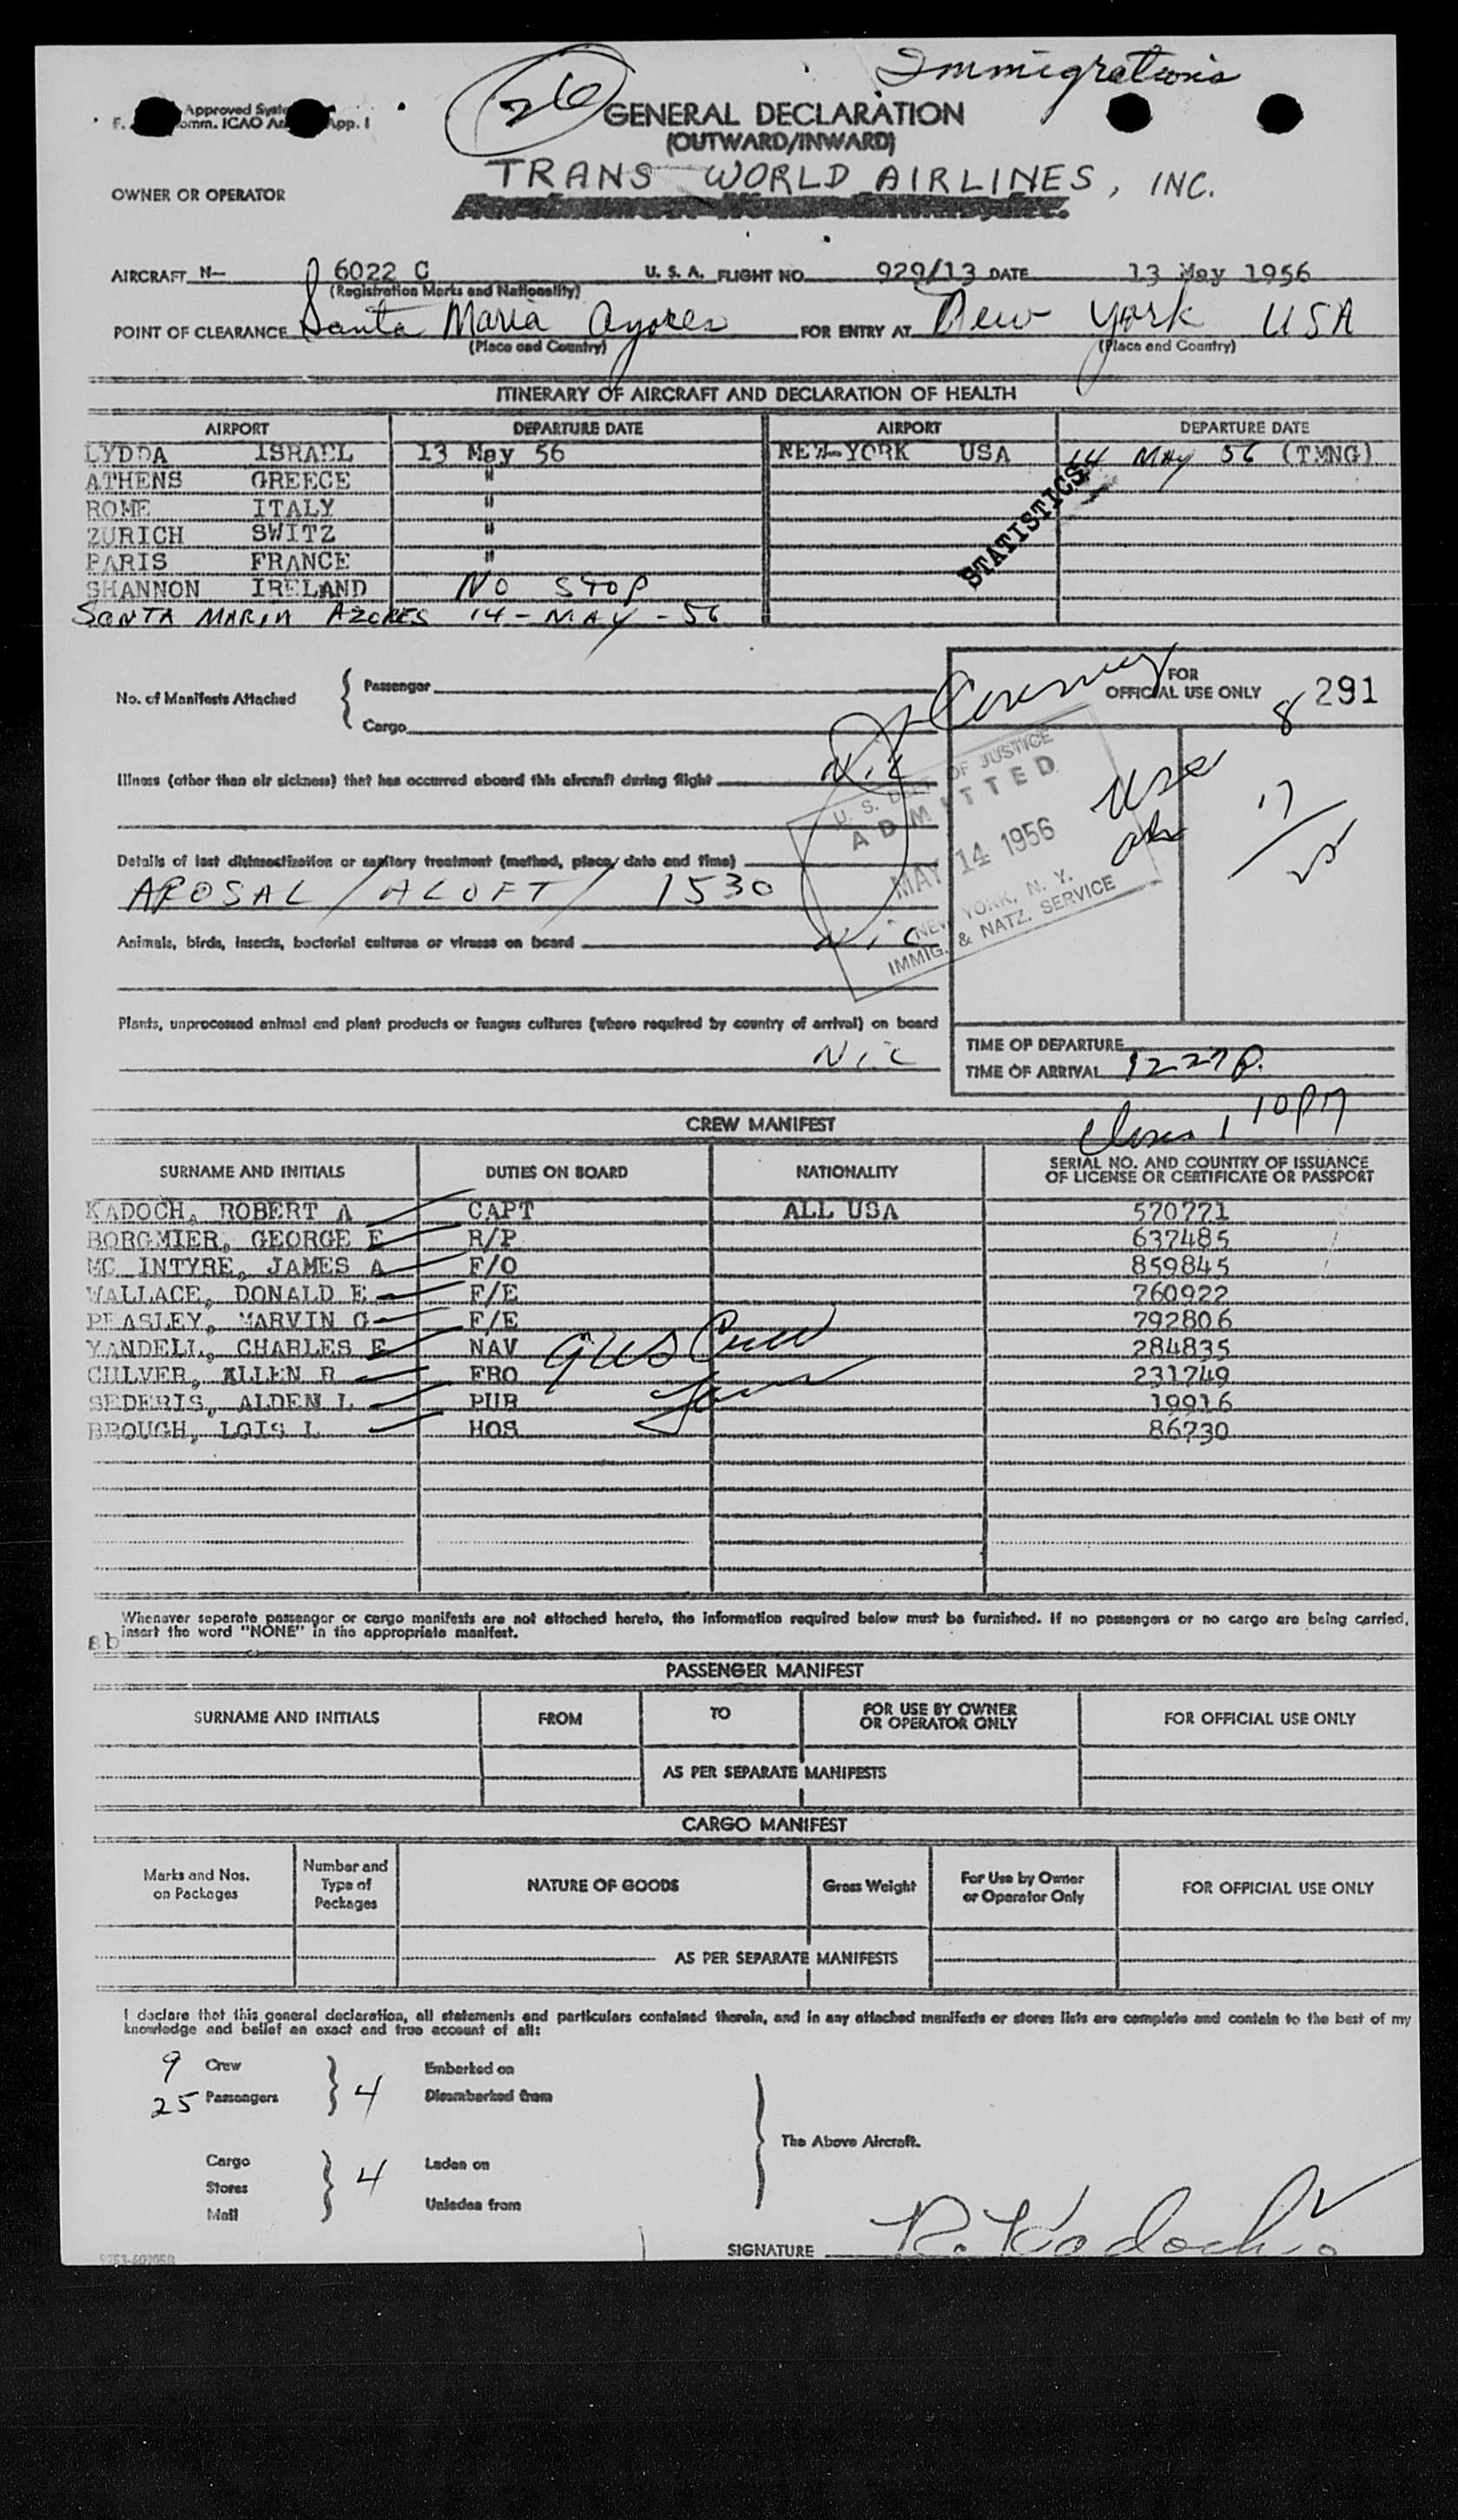 Immigrations
26
Approved Syste
F. omm. ICAO An App. I
GENERAL DECLARATION
(OUTWARD/INWARD)
TRANS WORLD AIRLINES, INC.
OWNER OR OPERATOR
AIRCRAFT N- 6022 C U. S. A. FLIGHT NO. 929/13 DATE 13 May 1956
(Registration Marks and Nationality)
POINT OF CLEARANCE Santa Maria Azores FOR ENTRY AT New York USA
(Place and Country) (Place and Country)
ITINERARY OF AIRCRAFT AND DECLARATION OF HEALTH
AIRPORT DEPARTURE DATE AIRPORT DEPARTURE DATE
LYDDA ISRAEL 13 May 56 NEW-YORK USA 14 MAY 56 (TMNG)
ATHENS GREECE "
ROME ITALY "
ZURICH SWITZ "
PARIS FRANCE "
SHANNON IRELAND NO STOP
SANTA MARIA AZORES 14-MAY-56
STATISTICS
FOR
OFFICIAL USE ONLY 8 291
No. of Manifests Attached { Passenger
Cargo
Illness (other than air sickness) that has occurred aboard this aircraft during flight Nil
U. S. DEPT. OF JUSTICE
ADMITTED
MAY 14 1956
NEW YORK, N. Y.
IMMIG. & NATZ. SERVICE
Details of last disinsectization or sanitary treatment (method, place, date and time)
AROSAL / ALOFT / 1530
Animals, birds, insects, bacterial cultures or viruses on board NiL
Plants, unprocessed animal and plant products or fungus cultures (where required by country of arrival) on board
NiL
TIME OF DEPARTURE
TIME OF ARRIVAL 1227 P.
1 10 PM
CREW MANIFEST
SURNAME AND INITIALS DUTIES ON BOARD NATIONALITY SERIAL NO. AND COUNTRY OF ISSUANCE
OF LICENSE OR CERTIFICATE OR PASSPORT
KADOCH, ROBERT A CAPT ALL USA 570771
BORGMIER, GEORGE E R/P 637485
MC INTYRE, JAMES A F/O 859845
WALLACE, DONALD E F/E 760922
PEASLEY, MARVIN G F/E 792806
YANDELL, CHARLES E NAV 284835
CULVER, ALLEN R FRO 231749
SEDERIS, ALDEN L PUR 19916
BROUGH, LOIS L HOS 86730
Whenever separate passenger or cargo manifests are not attached hereto, the information required below must be furnished. If no passengers or no cargo are being carried,
insert the word "NONE" in the appropriate manifest.
PASSENGER MANIFEST
SURNAME AND INITIALS FROM TO FOR USE BY OWNER
OR OPERATOR ONLY FOR OFFICIAL USE ONLY
AS PER SEPARATE MANIFESTS
CARGO MANIFEST
Marks and Nos.
on Packages
Number and
Type of
Packages
NATURE OF GOODS Gross Weight For Use by Owner
or Operator Only FOR OFFICIAL USE ONLY
AS PER SEPARATE MANIFESTS
I declare that this general declaration, all statements and particulars contained therein, and in any attached manifests or stores lists are complete and contain to the best of my
knowledge and belief an exact and true account of all:
9 Crew
25 Passengers } 4 Embarked on
Disembarked from
The Above Aircraft.
Cargo
Stores
Mail } 4 Laden on
Unladen from
SIGNATURE R. Kadoch